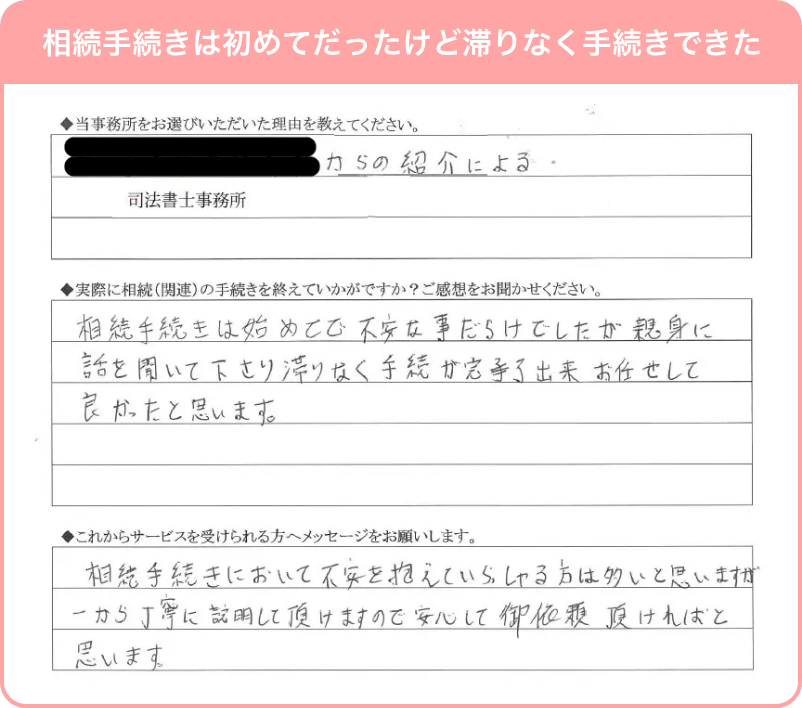 相続手続きは初めてだったけど滞りなく手続きできた
◆当事務所をお選びいただいた理由を教えてください。
からの紹介による.
司法書士事務所
◆実際に相続(関連)の手続きを終えていかがですか？ご感想をお聞かせください。
相続手続きは始めてで不安な事だらけでしたが親身に
話を聞いて下さり滞りなく手続が完了出来お任せして
良かったと思います。
◆これからサービスを受けられる方へメッセージをお願いします。
相続手続きにおいて不安を抱えていらっしゃる方は多いと思いますが
一から丁寧に説明して頂けますので安心して御依頼頂ければと
思います。